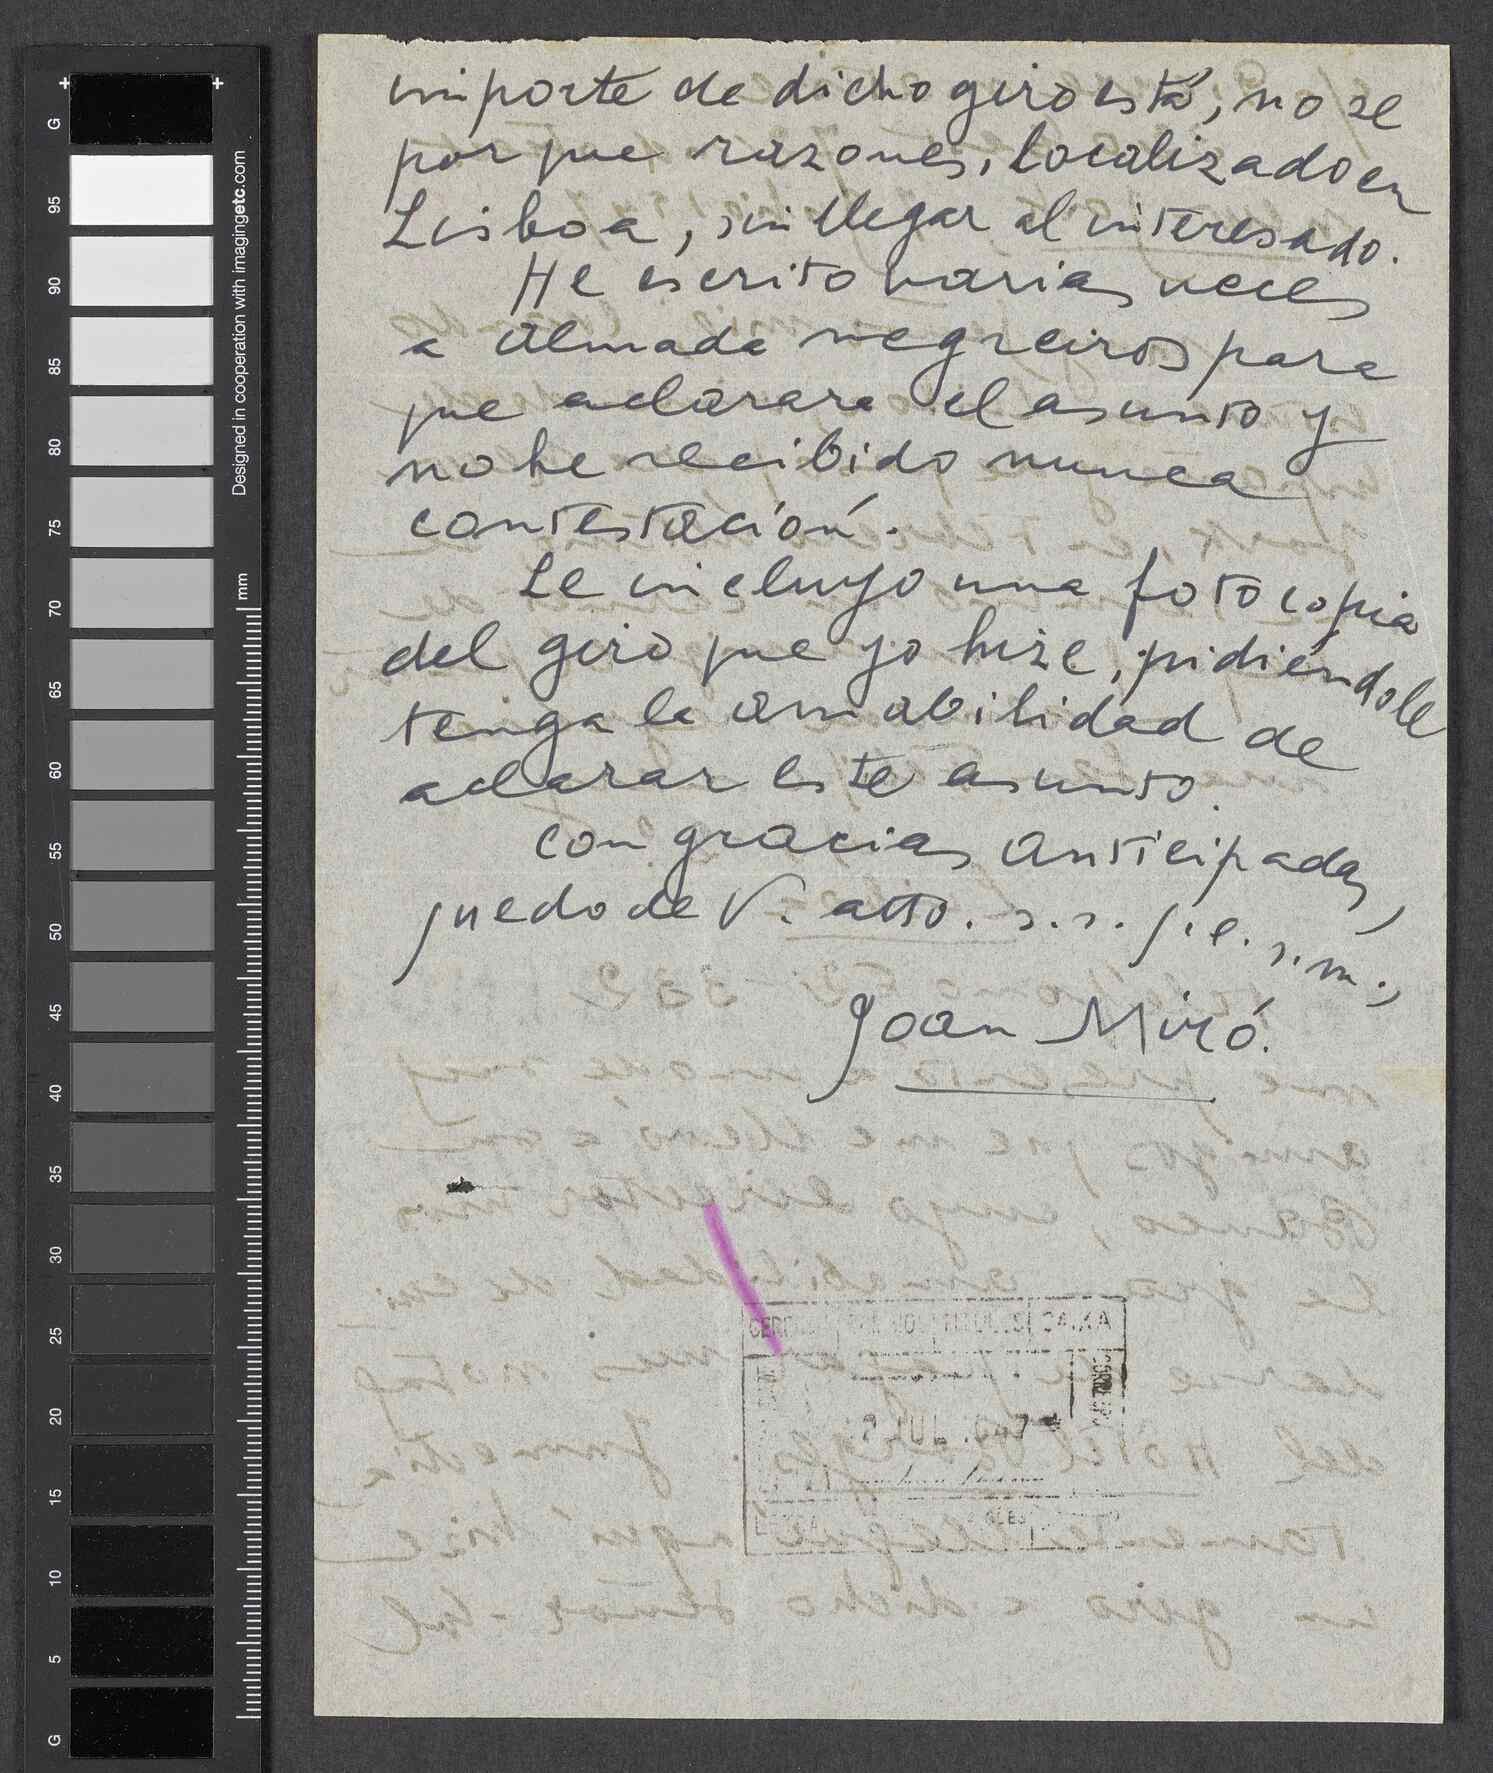 importe de dicho giro está, no se
por que razones, localizado en
Lisboa, sin llegar al interesado.
He escrito varias veces
a Almada negreiros para
que aclarara el asunto y
no he recibido nunca
contestación.
Le incluyo una fotocopia
del giro que yo hize, pidiéndole
tenga la amabilidad de
aclarar este asunto.
Con gracias anticipadas,
quedo de V. atto. s.s. q.e.s.m.,
Joan Miró.
CAIXA
JUL
Designed in cooperation with imagingetc.com
mm
G
95
90
85
80
75
70
65
60
55
50
45
40
35
30
25
20
15
10
5
G